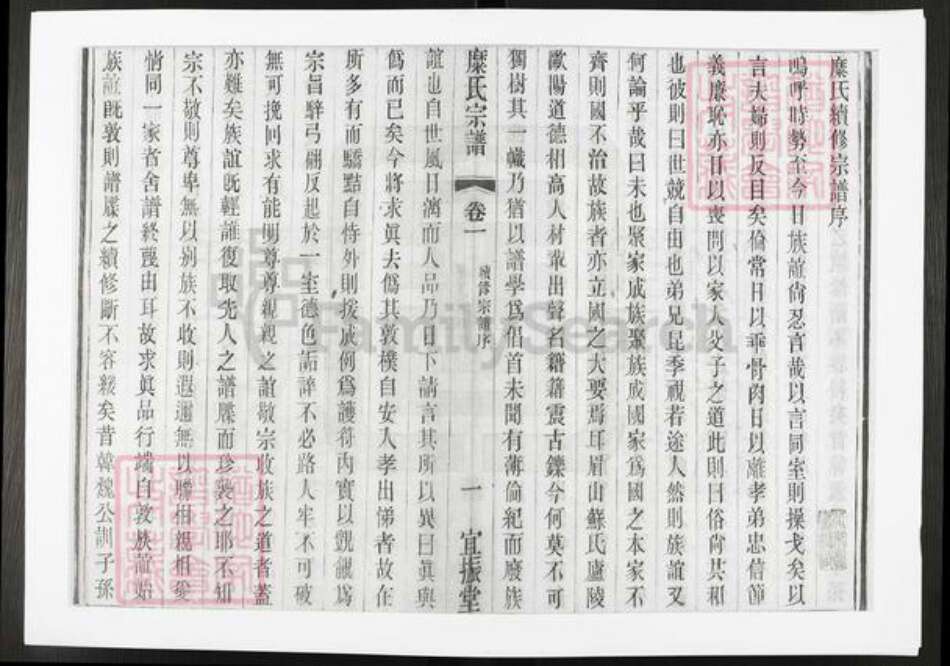 糜氏續修宗譜序
嗚呼時勢至今日族誼尙忍言哉以言同室則操戈矣以
言夫婦則反目矣倫常日以乖骨肉日以離孝弟忠信節
義廉恥亦日以喪問以家人父子之道此則曰俗尙共和
也彼則曰世競自由也弟兄昆季視若途人然則族誼又
何論乎哉曰未也聚家成族聚族成國家爲國之本家不
齊則國不治故族者亦立國之大要焉耳眉山蘇氏廬陵
歐陽道德相高人材輩出聲名藉藉震古鑠今何莫不可
獨樹其一幟乃猶以譜學爲倡首未聞有薄倫紀而廢族
糜氏宗譜 卷一 續修宗譜序 一 宜振堂
誼也自世風日漓而人品乃日下請言其所以異曰眞與
僞而已矣今將求眞夫僞其敦樸自安人孝出悌者故在
所多有而驕黠自恃外則援成例爲護符內實以覬覦爲
宗旨騂弓翩反起於一室德色詬誶不必路人牢不可破
無可挽回求有能明尊尊親親之誼敬宗收族之道者蓋
亦難矣族誼旣輕誰復取先人之譜牒而珍襲之耶不知
宗不敬則尊卑無以別族不收則遐邇無以聯相親相愛
情同一家者舍譜終喪由耳故求眞品行端自敦族誼始
族誼旣敦則譜牒之續修斷不容緩矣昔韓魏公訓子孫
FamilySearch